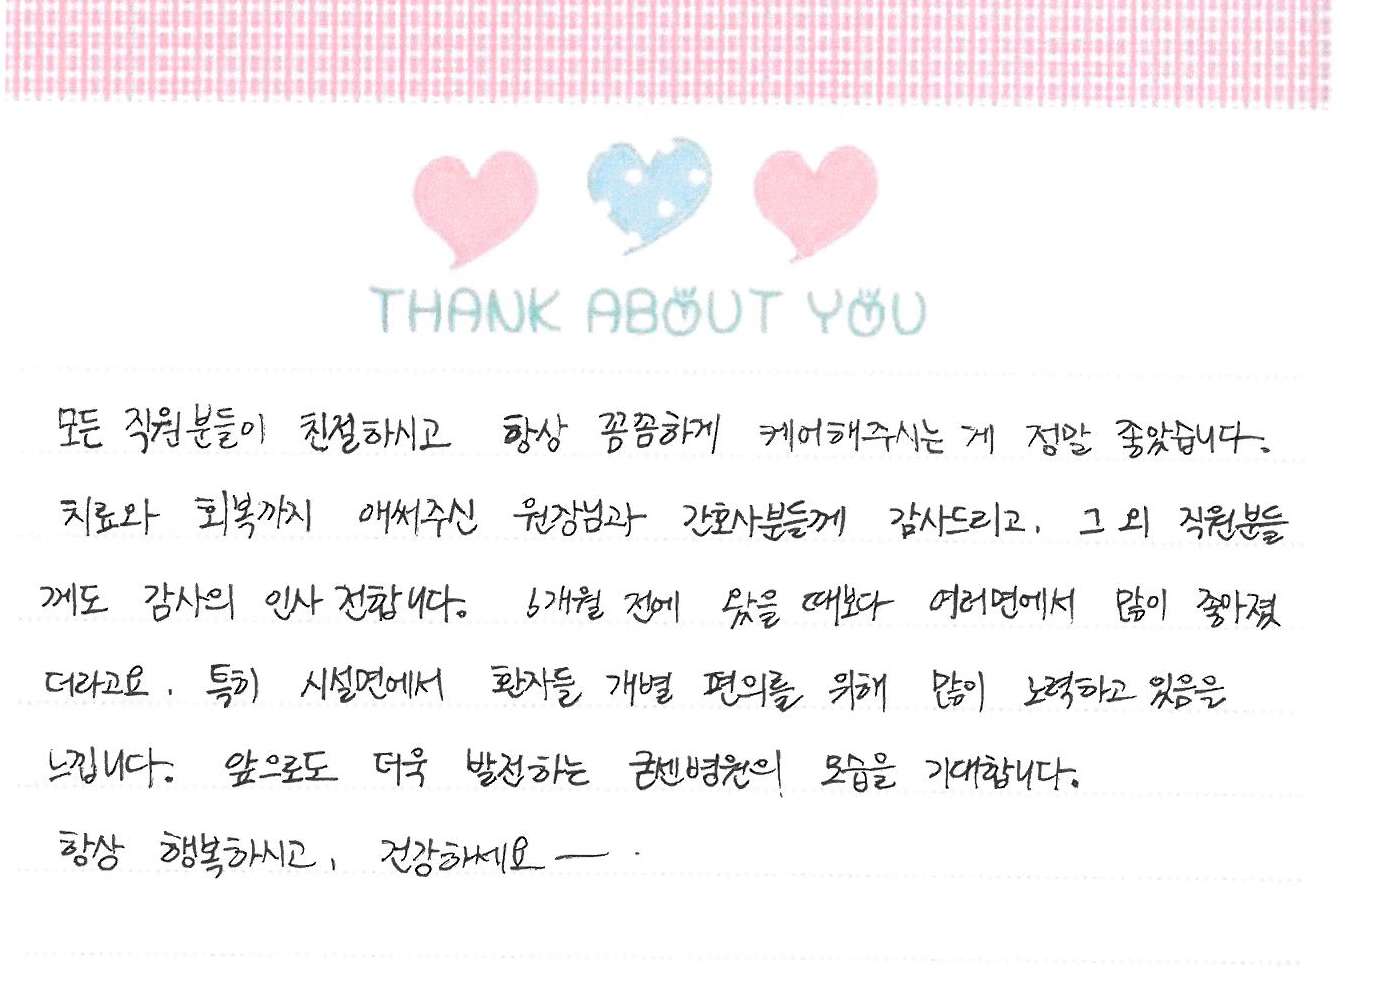 THANK ABOUT YOU
모든 직원분들이 친절하시고 항상 꼼꼼하게 케어해주시는 게 정말 좋았습니다.
치료와 회복까지 애써주신 원장님과 간호사분들께 감사드리고, 그 외 직원분들
께도 감사의 인사 전합니다. 6개월 전에 왔을 때보다 여러면에서 많이 좋아졌
더라고요. 특히 시설면에서 환자들 개별 편의를 위해 많이 노력하고 있음을
느낍니다. 앞으로도 더욱 발전하는 굳센병원의 모습을 기대합니다.
항상 행복하시고, 건강하세요 ― .